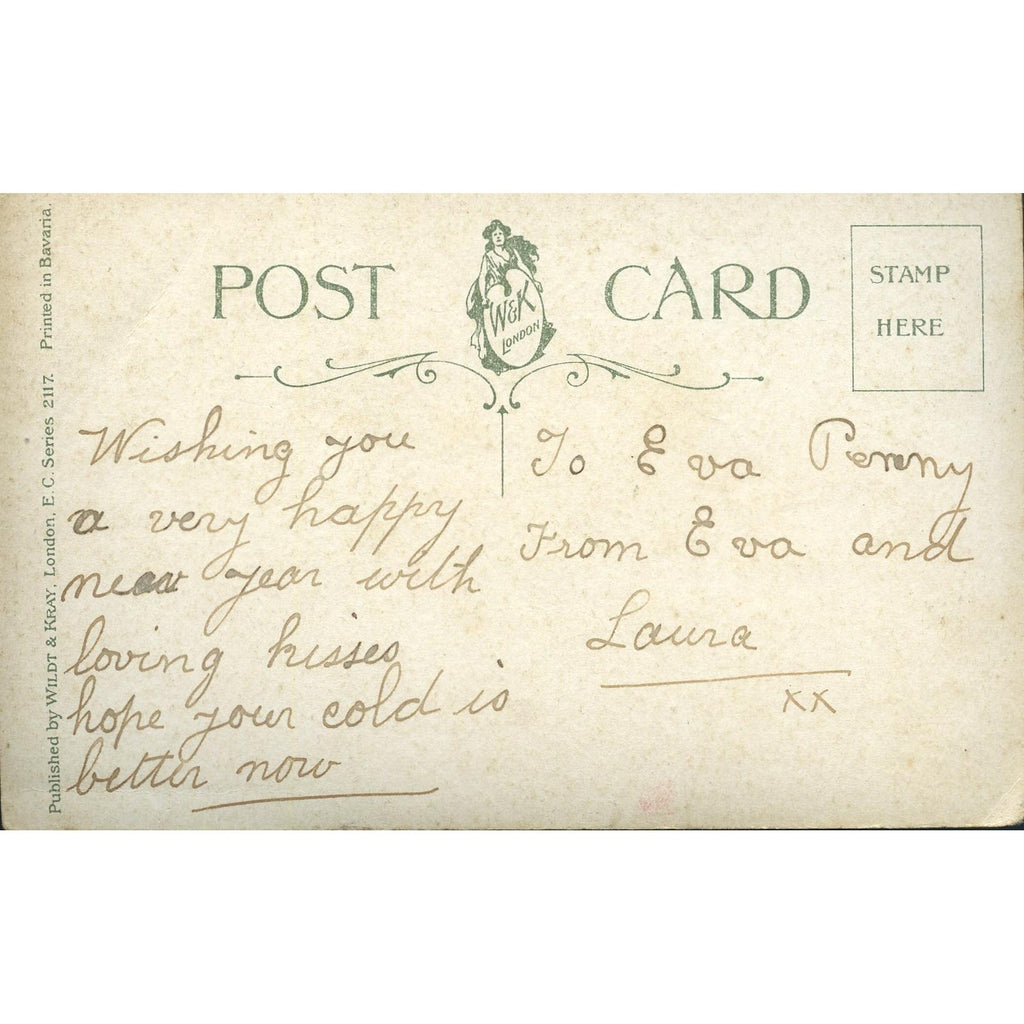 POST CARD
W&K
LONDON
STAMP
HERE
Published by WILDT & KRAY, London, E.C. Series 2117. Printed in Bavaria.
Wishing you
a very happy
new year with
loving kisses
hope your cold is
better now
To Eva Penny
From Eva and
Laura
xx